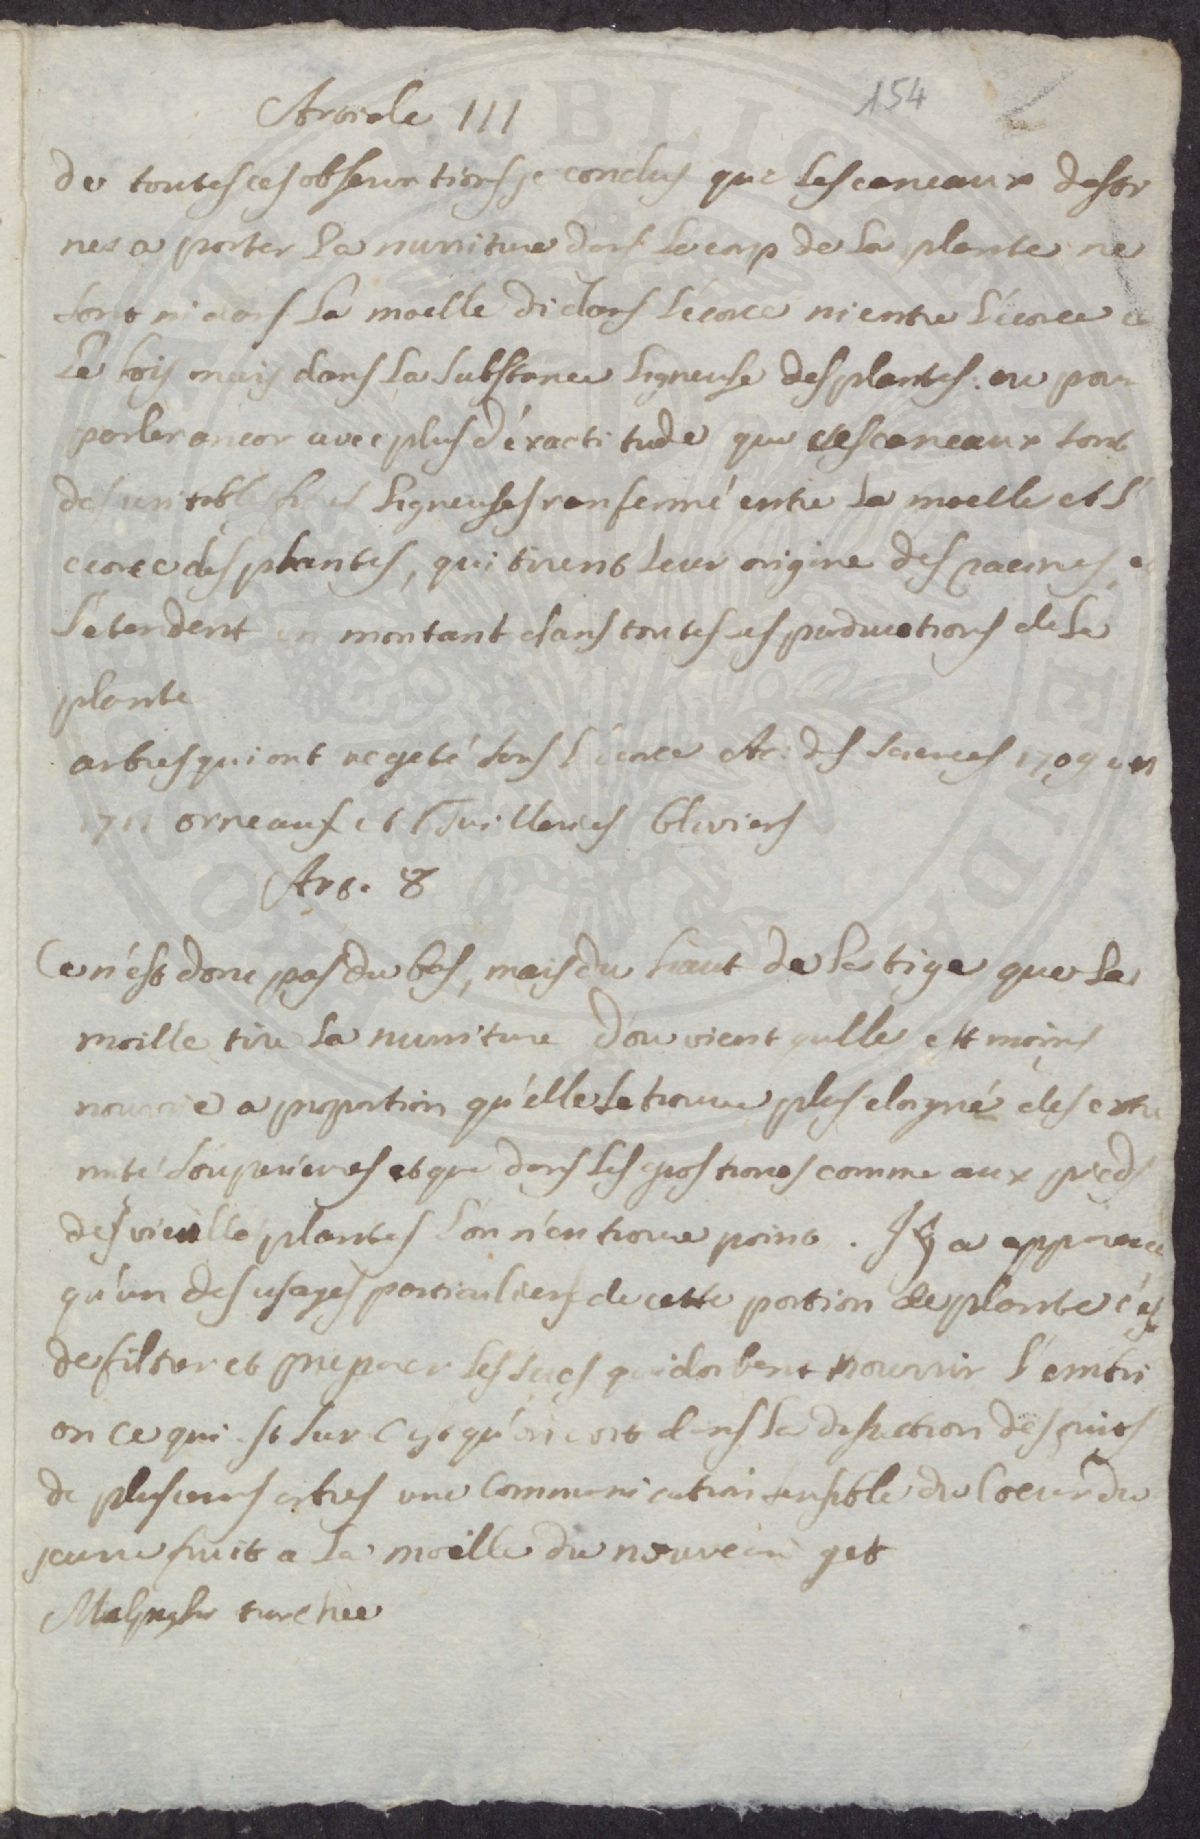 154
Article III
de toutes ces observations je conclus que les caneaux desti
nes a porter la nurriture dans le corp de la plante ne
sont ni dans la moelle di dans l'écorce ni entre l'écorce e
le bois mais dans la substance ligneuse des plantes. ou pour
parler ancor avec plus d'éxactitude que ces caneaux sont
des veritable fibres ligneuses renfermé entre la moelle et l'
ecorce des plantes, qui tirent leur origine des racines, e
s'etendent en montant dans toutes ses productions de la
plante
arbres qui ont vegeté sans l'écorce Ac. des sciences 1709 en
1711 ormeaux et Tuilleries
Art. 8
Ce n'est donc pas du bas, mais du haut de la tige que la
moille tire la nurriture d'ou vient qulle est moins
nourrie a proportion qu'elle se trouve plus eloigné des extre
mité souperieures et que dans les gros troncs comme aux pieds
des vieille plantes l'on n'en trouve point. Il y a apparence
qu'un des usages particuliers de cette portion de plante c'est
de filtrer et preparer les sucs qui doibent nourrir l'embri
on ce qui est sur C'est qu'on voit dans la dissection des fruits
de plusieurs arbres une Communication sensible du Coeur du
jeune fruit a la moille du nouveau get
Malpighi